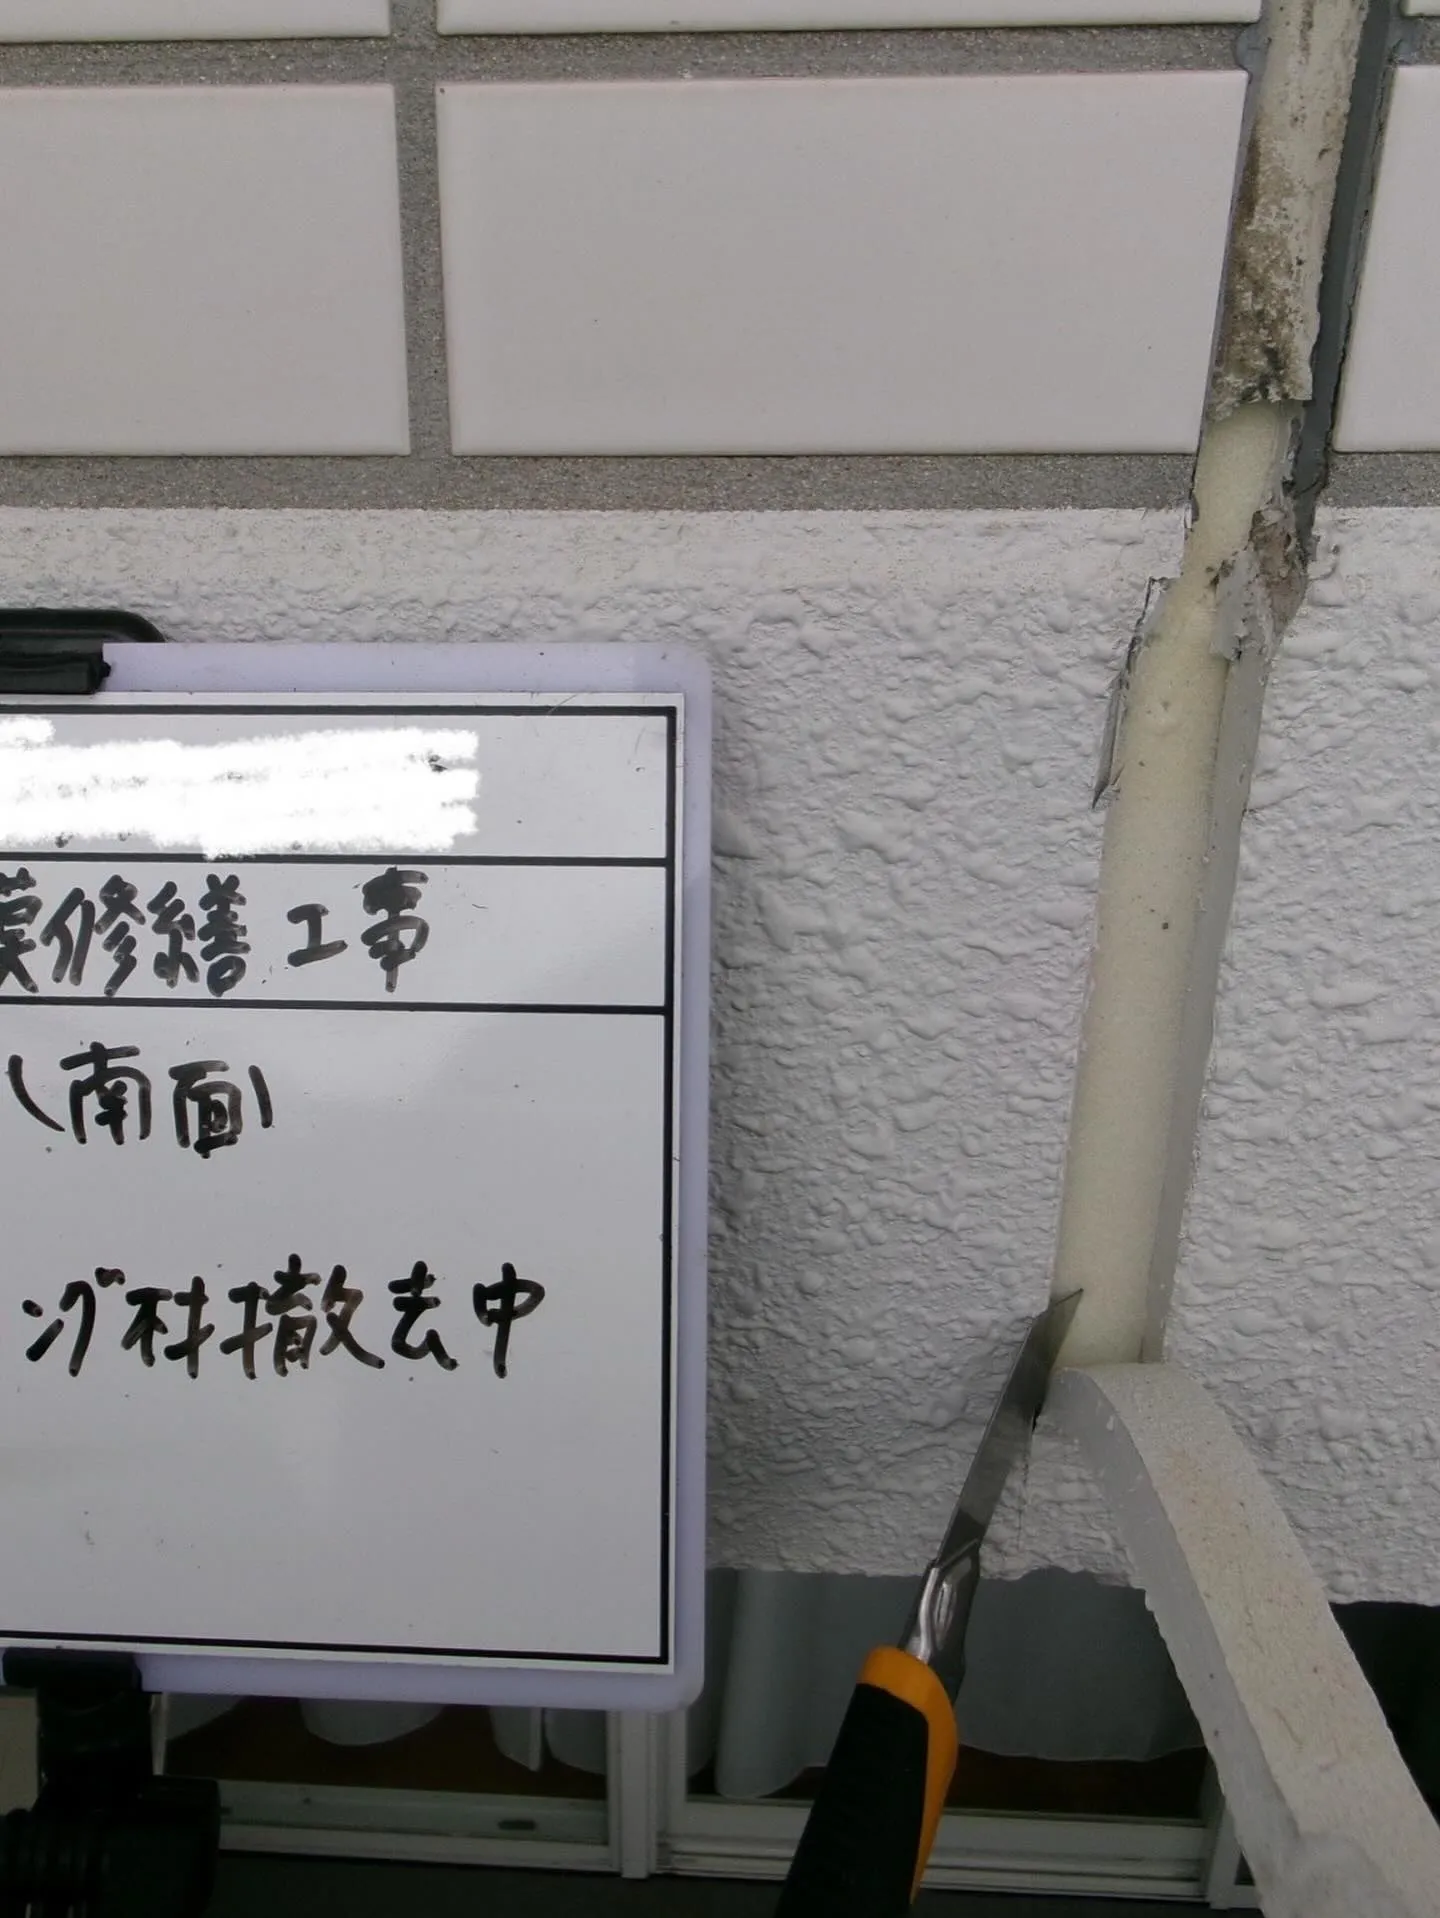 模修繕工事
(南面)
ング材撤去中